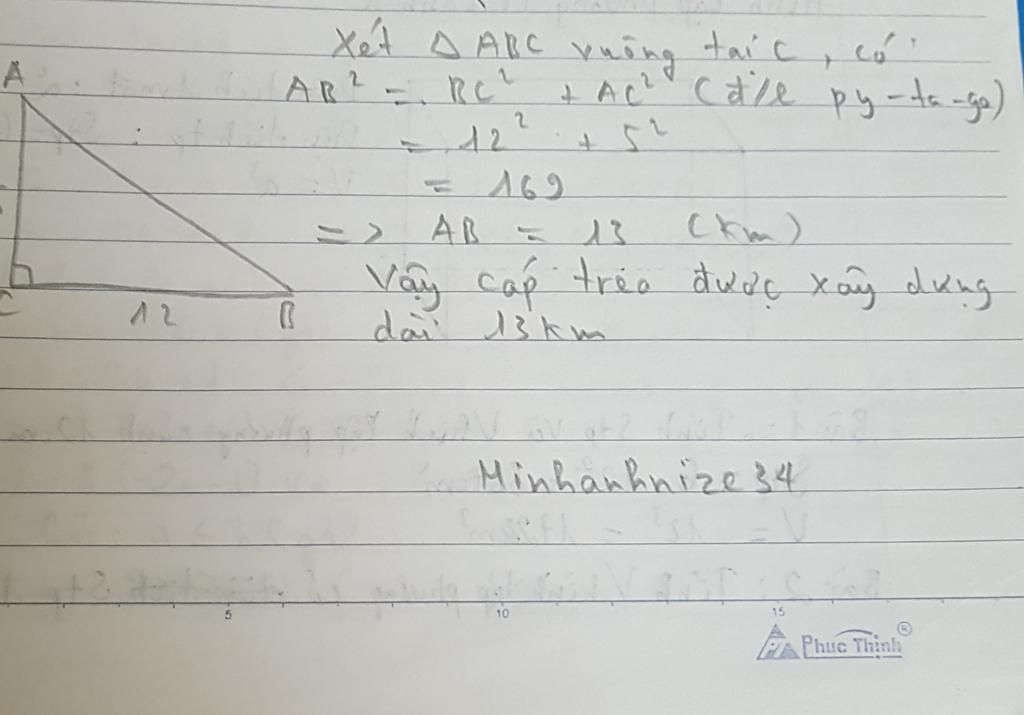 Xét Δ ABC vuông tại C, có:
A
AB² = BC² + AC² (đ/l py-ta-go)
= 12² + 5²
= 169
=> AB = 13 (km)
Vậy cáp treo được xây dựng
C 12 B
dài 13km
Minhanhnize34
5 10 15
Phuc Thịnh ®